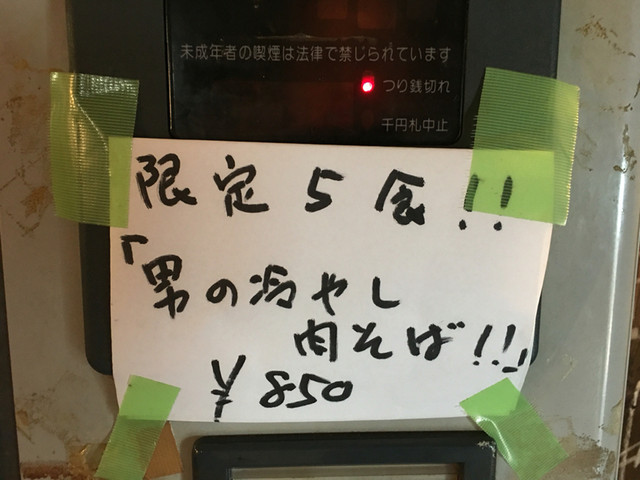 未成年者の喫煙は法律で禁じられています
つり銭切れ
千円札中止
限定5食!!
「男の冷やし
肉そば!!」
¥850